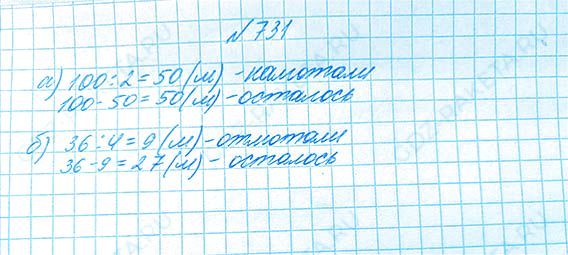 № 731
а) 100:2=50(м) - намотали
100-50=50(м) - осталось
б) 36:4=9(м) - отмотали
36-9=27(м) - осталось